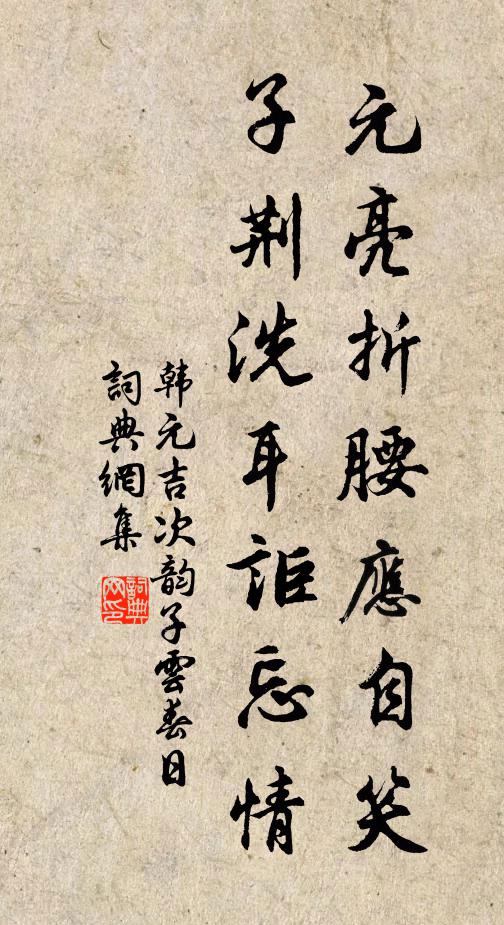 元亮折腰應自笑
子荆洗耳詎忘情
韩元吉次韵子雲春日
詞典網集
詞典网印